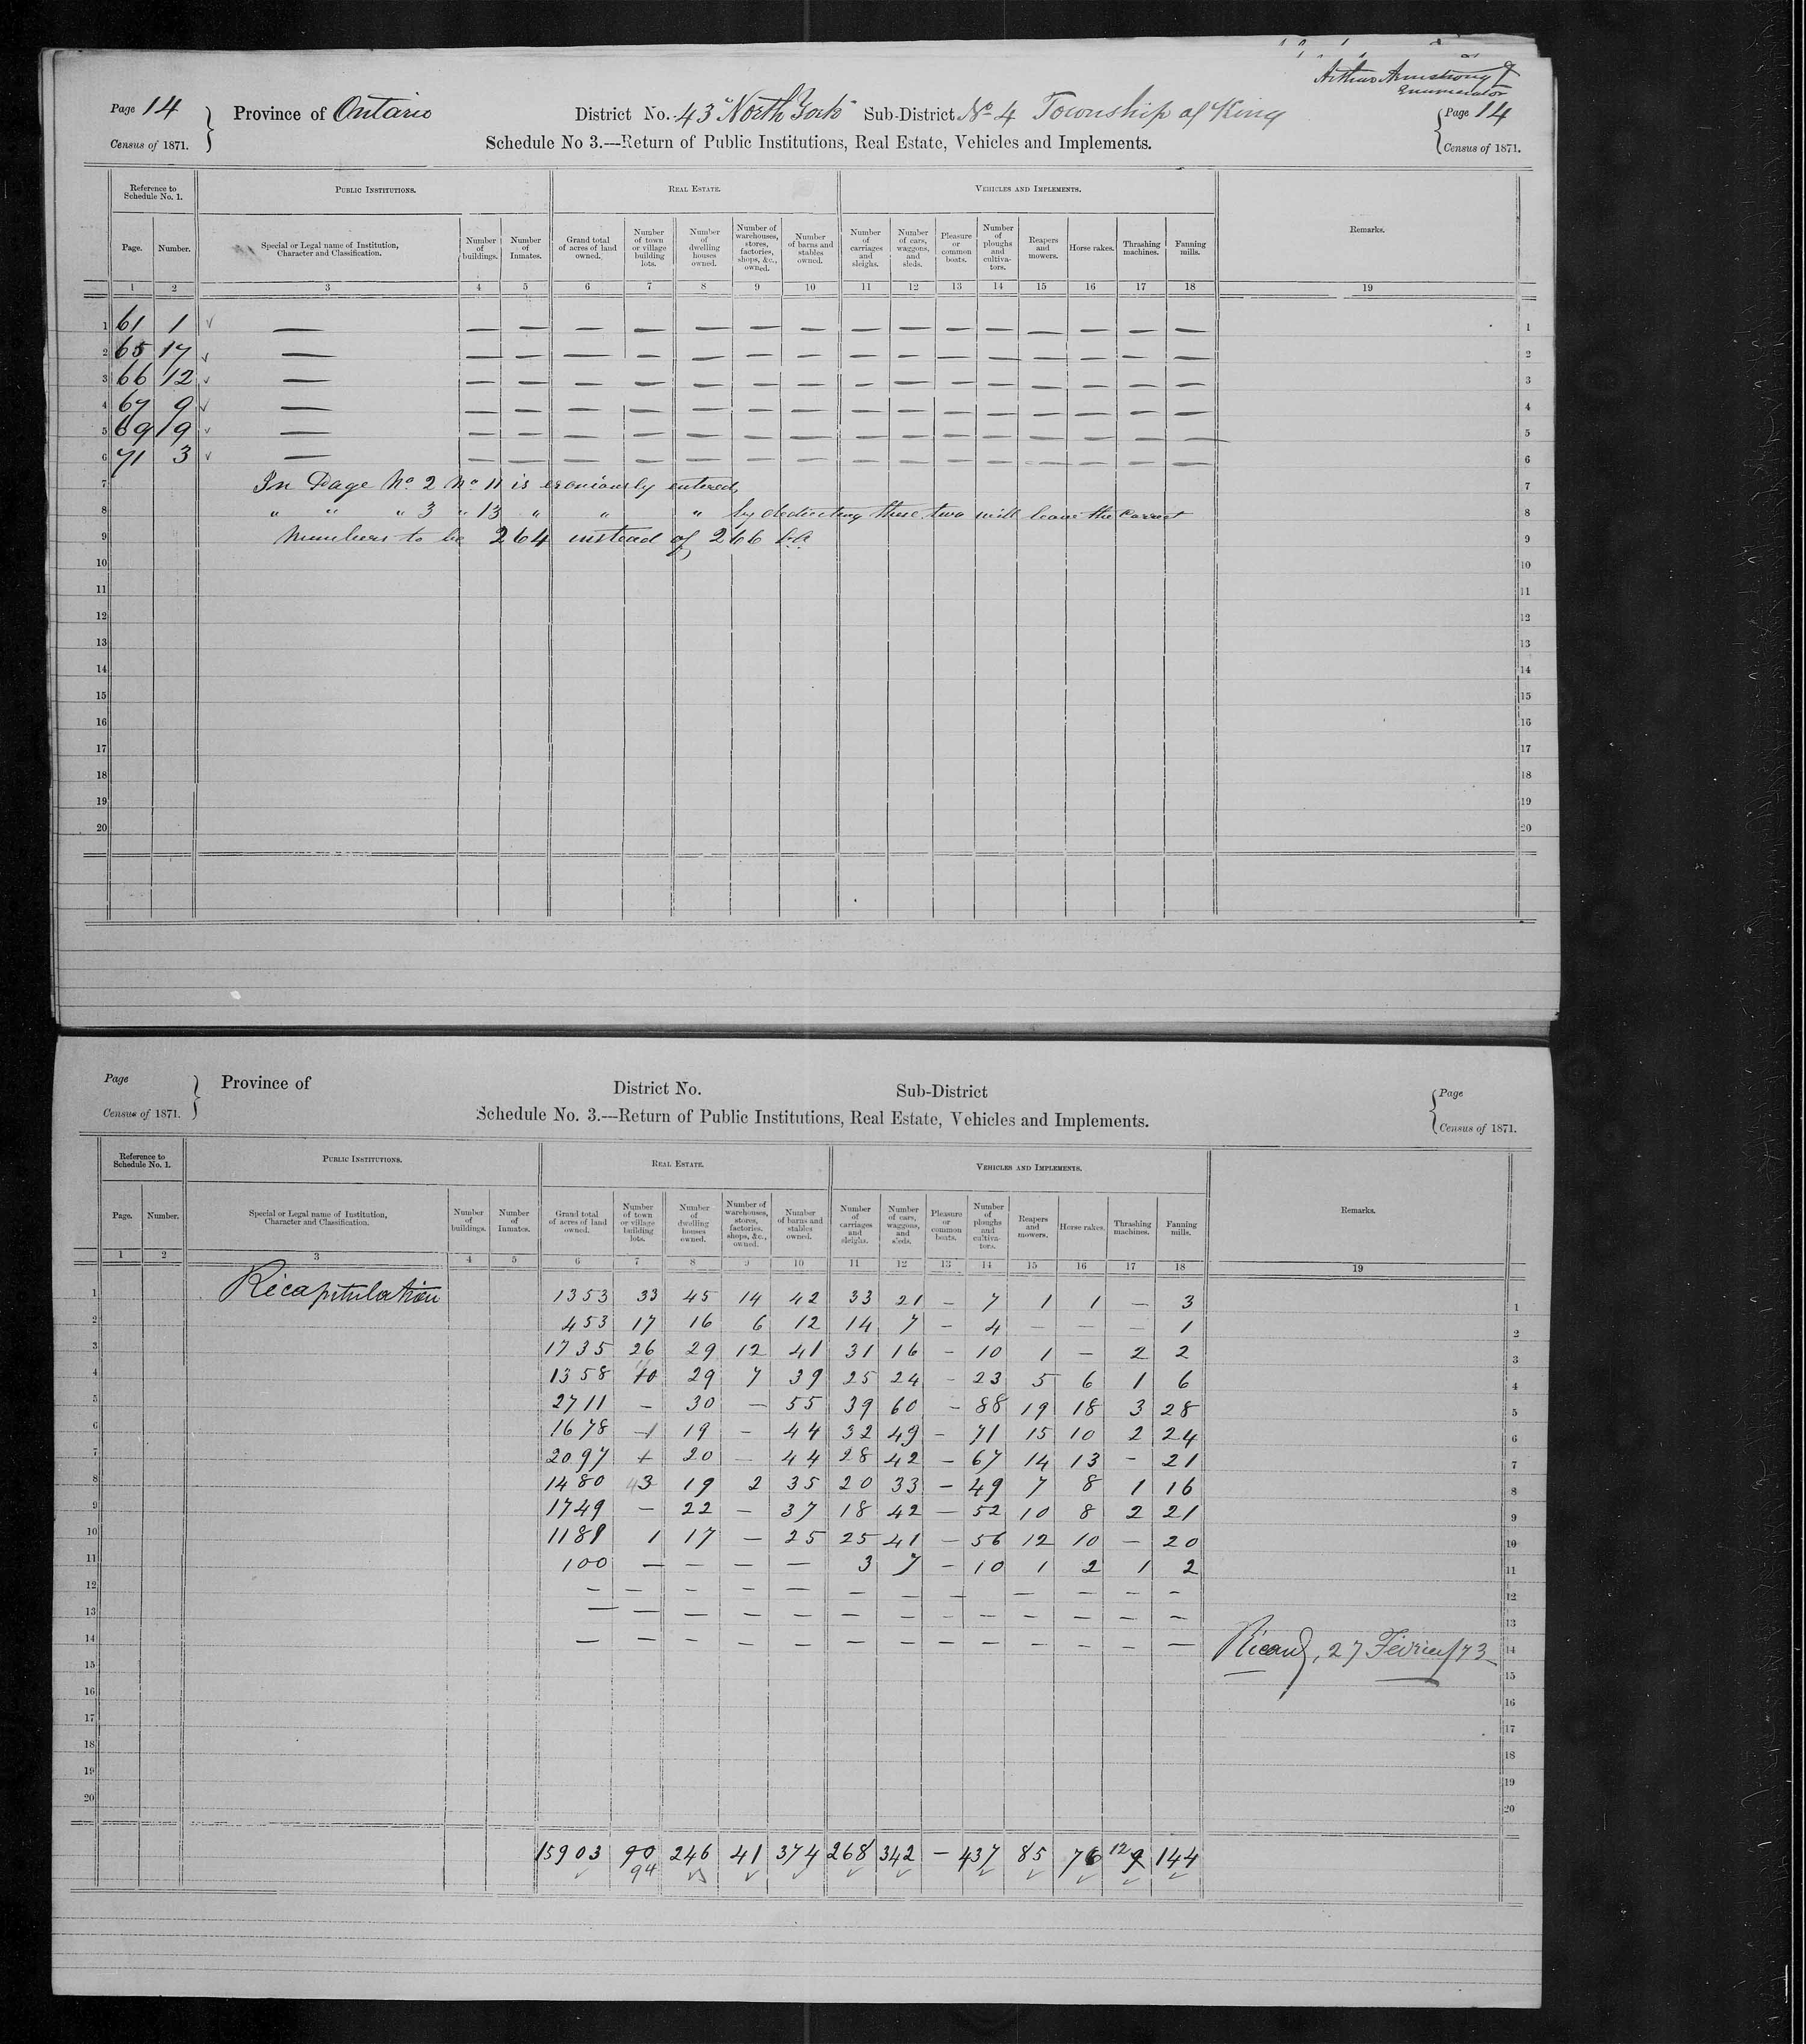 Arthur Armstrong
Enumerator
Page 14 Province of Ontario District No. 43 "North York" Sub-District No 4 Township of King Page 14
Census of 1871. Census of 1871.
Schedule No 3.—Return of Public Institutions, Real Estate, Vehicles and Implements.
Reference to Schedule No. 1. PUBLIC INSTITUTIONS. REAL ESTATE. VEHICLES AND IMPLEMENTS. Remarks.
Page. Number. Special or Legal name of Institution, Character and Classification. Number of buildings. Number of Inmates. Grand total of acres of land owned. Number of town or village building lots. Number of dwelling houses owned. Number of warehouses, stores, factories, shops, &c., owned. Number of barns and stables owned. Number of carriages and sleighs. Number of cars, waggons, and sleds. Pleasure or common boats. Number of ploughs and cultiva-tors. Reapers and mowers. Horse rakes. Thrashing machines. Fanning mills.
1 2 3 4 5 6 7 8 9 10 11 12 13 14 15 16 17 18 19
1 61 1 √ — — — — — — — — — — — — — — — — 1
2 65 17 √ — — — — — — — — — — — — — — — — 2
3 66 12 √ — — — — — — — — — — — — — — — — 3
4 67 9 √ — — — — — — — — — — — — — — — — 4
5 69 19 √ — — — — — — — — — — — — — — — — 5
6 71 3 √ — — — — — — — — — — — — — — — — 6
7 In Page No 2 No 11 is eroniously entered, 7
8 " " " 3 " 13 " " " by deducting these two will leave the Correct 8
9 Numbers to be 264 instead of 266 9
10 10
11 11
12 12
13 13
14 14
15 15
16 16
17 17
18 18
19 19
20 20
Page Province of District No. Sub-District Page
Census of 1871. Census of 1871.
Schedule No. 3.—Return of Public Institutions, Real Estate, Vehicles and Implements.
Reference to Schedule No. 1. PUBLIC INSTITUTIONS. REAL ESTATE. VEHICLES AND IMPLEMENTS. Remarks.
Page. Number. Special or Legal name of Institution, Character and Classification. Number of buildings. Number of Inmates. Grand total of acres of land owned. Number of town or village building lots. Number of dwelling houses owned. Number of warehouses, stores, factories, shops, &c., owned. Number of barns and stables owned. Number of carriages and sleighs. Number of cars, waggons, and sleds. Pleasure or common boats. Number of ploughs and cultiva-tors. Reapers and mowers. Horse rakes. Thrashing machines. Fanning mills.
1 2 3 4 5 6 7 8 9 10 11 12 13 14 15 16 17 18 19
1 Récapitulation 1353 33 45 14 42 33 21 — 7 1 1 — 3 1
2 453 17 16 6 12 14 7 — 4 — — — 1 2
3 1735 26 29 12 41 31 16 — 10 1 — 2 2 3
4 1358 10 29 7 39 25 24 — 23 5 6 1 6 4
5 2711 — 30 — 55 39 60 — 88 19 18 3 28 5
6 1678 1 19 — 44 32 49 — 71 15 10 2 24 6
7 2097 + 20 — 44 28 42 — 67 14 13 — 21 7
8 1480 3 19 2 35 20 33 — 49 7 8 1 16 8
9 1749 — 22 — 37 18 42 — 52 10 8 2 21 9
10 1189 1 17 — 25 25 41 — 56 12 10 — 20 10
11 100 — — — — 3 7 — 10 1 2 1 2 11
12 — — — — — — — — — — — — 12
13 — — — — — — — — — — — — — 13
14 — — — — — — — — — — — — — Ricard, 27 Février/73 14
15 15
16 16
17 17
18 18
19 19
20 20
15903 90 246 41 374 268 342 — 437 85 76 12 9 144
94